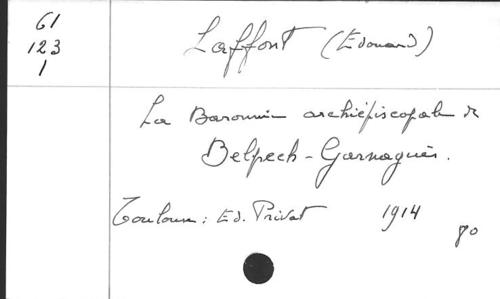 61
123
1
Laffont (Edouard)
La Baronnie archiépiscopale de
Belpech-Garnaguès.
Toulouse : Ed. Privat 1914
8º